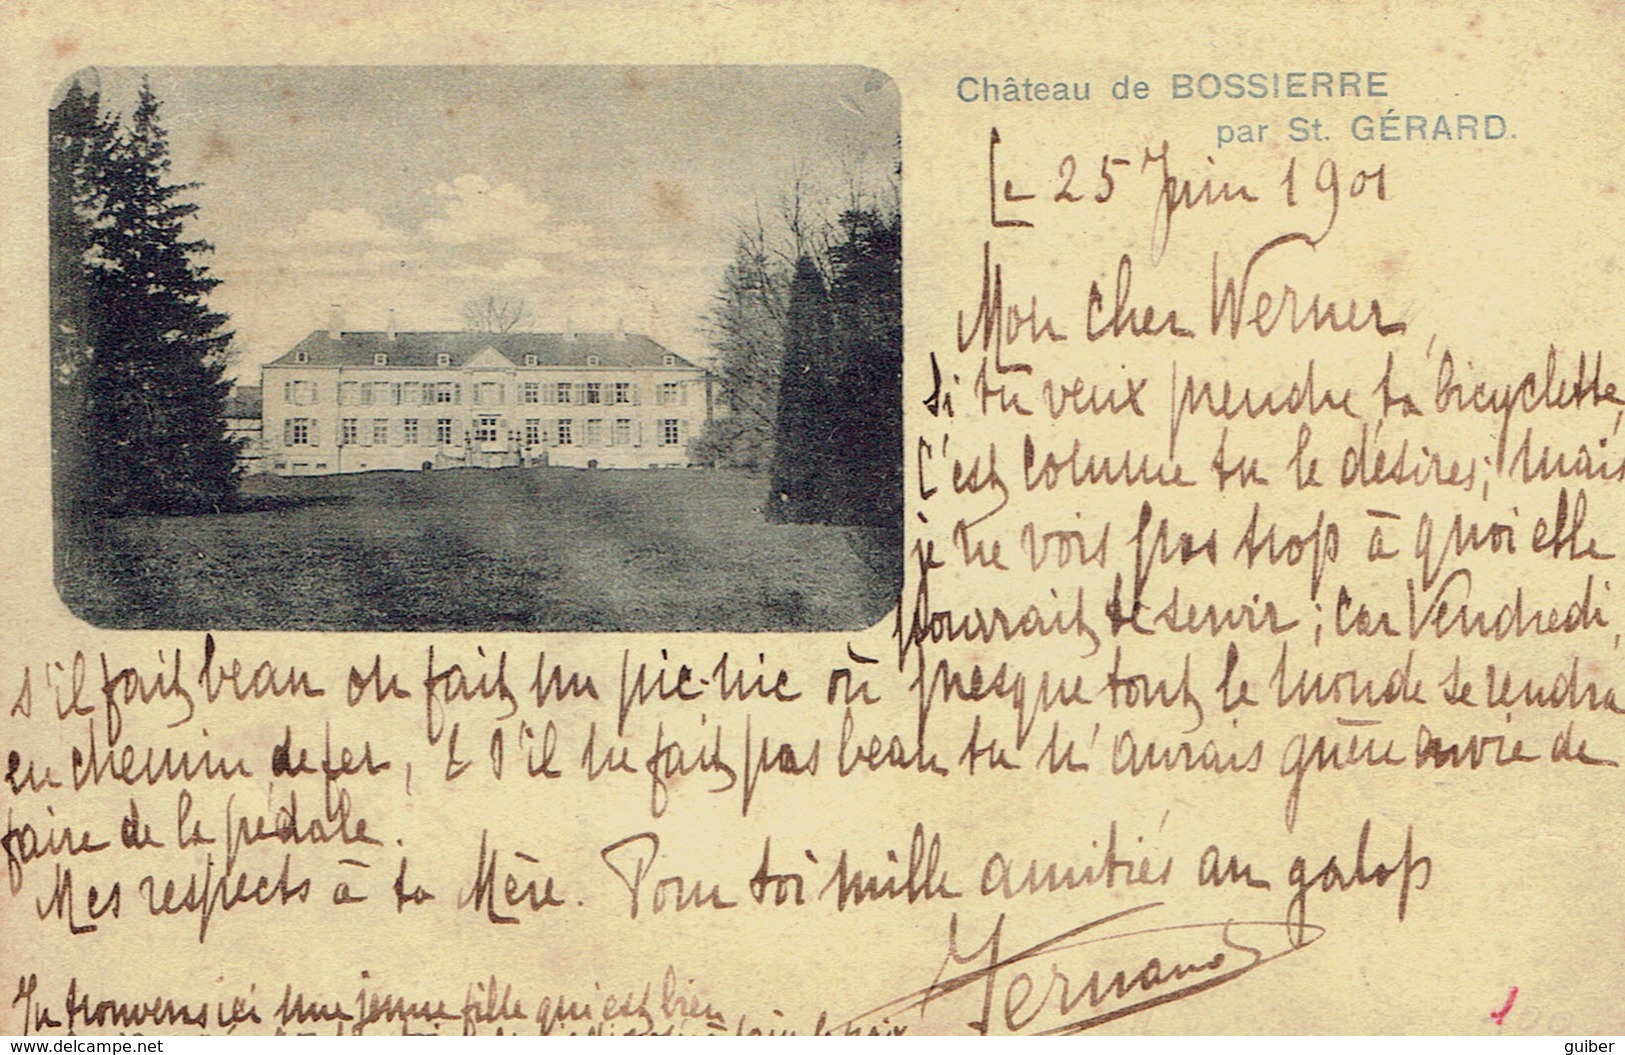 Château de BOSSIERRE
par St. GÉRARD.
Le 25 Juin 1901
Mon cher Werner,
si tu veux prendre ta bicyclette,
c'est comme tu le désires; mais
je ne vois pas trop à quoi elle
pourrait te servir; car Vendredi,
s'il fait beau on fait un pic-nic où presque tout le monde se rendra
en chemin de fer, & s'il ne fait pas beau tu n'aurais guère envie de
faire de la pédale.
Mes respects à ta Mère. Pour toi mille amitiés au galop
Fernand
Tu trouveras ici une jeune fille qui est bien
100
delcampe.net
guiber